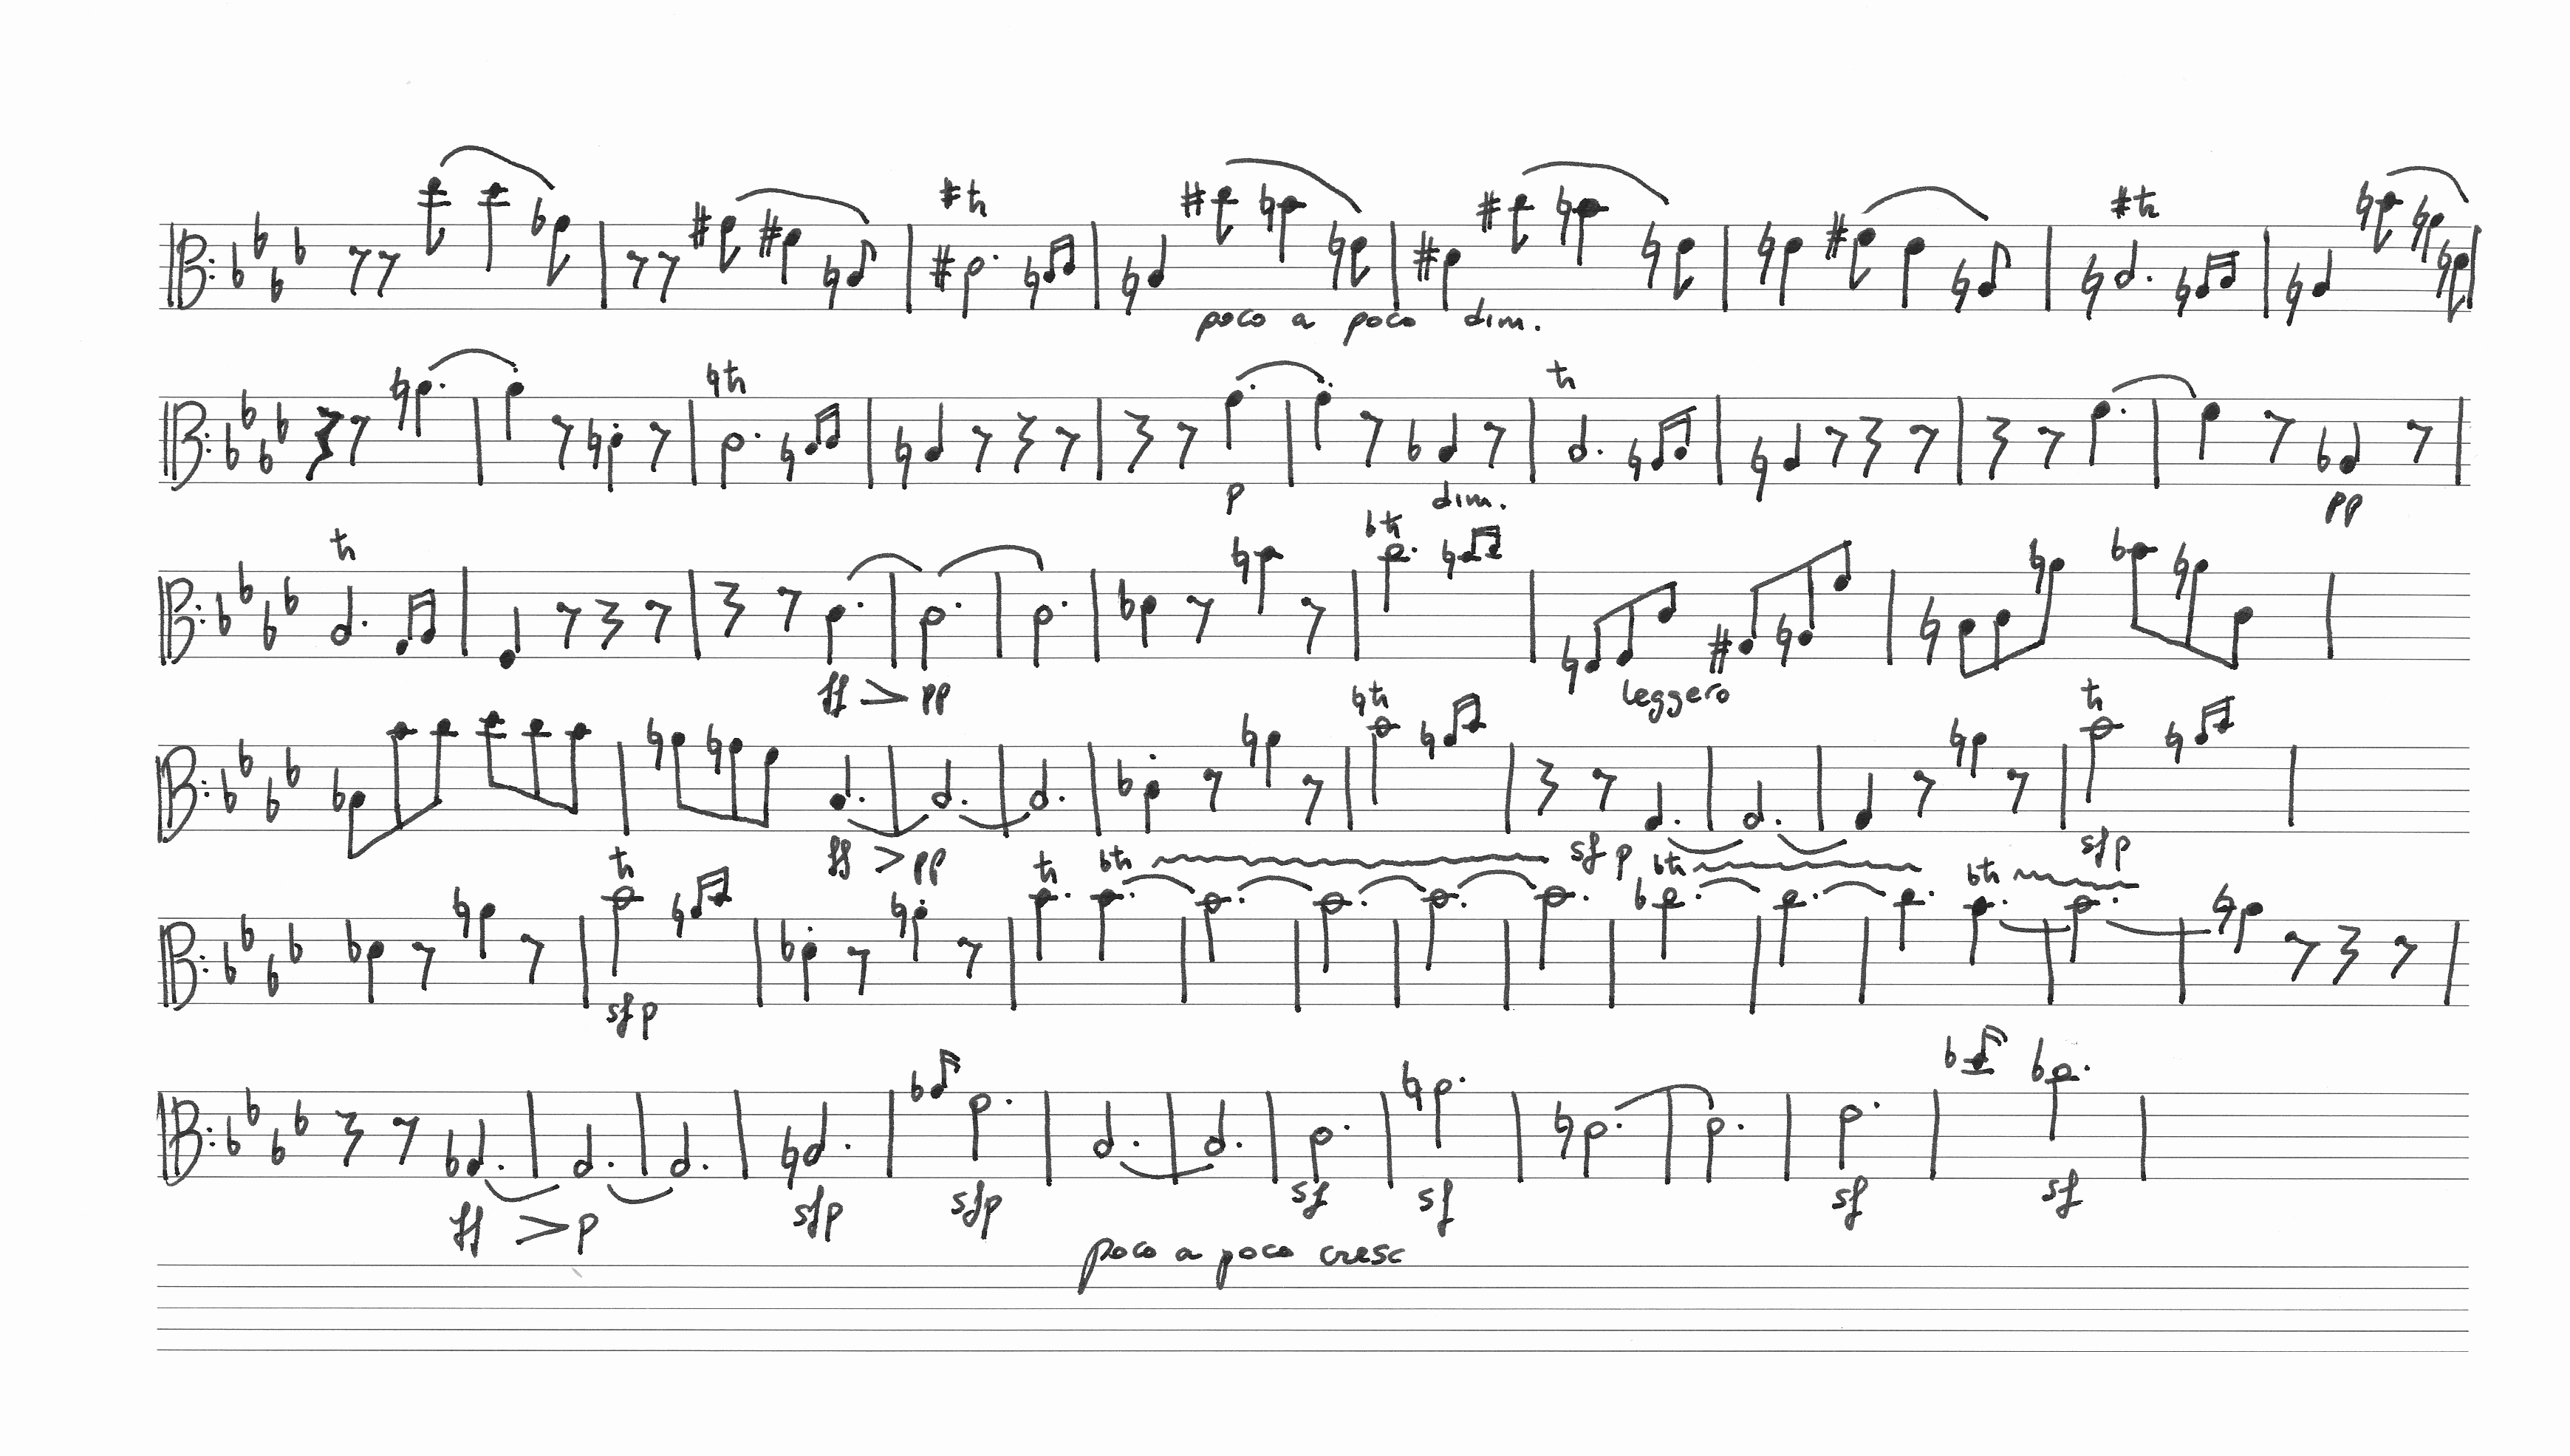 tr
poco a poco dim.
tr
tr tr
p dim. pp
tr tr
ff > pp leggero
tr tr
ff > pp sfp sfp
tr tr tr tr tr
sfp
ff > p sfp sfp sf sf sf sf
poco a poco cresc